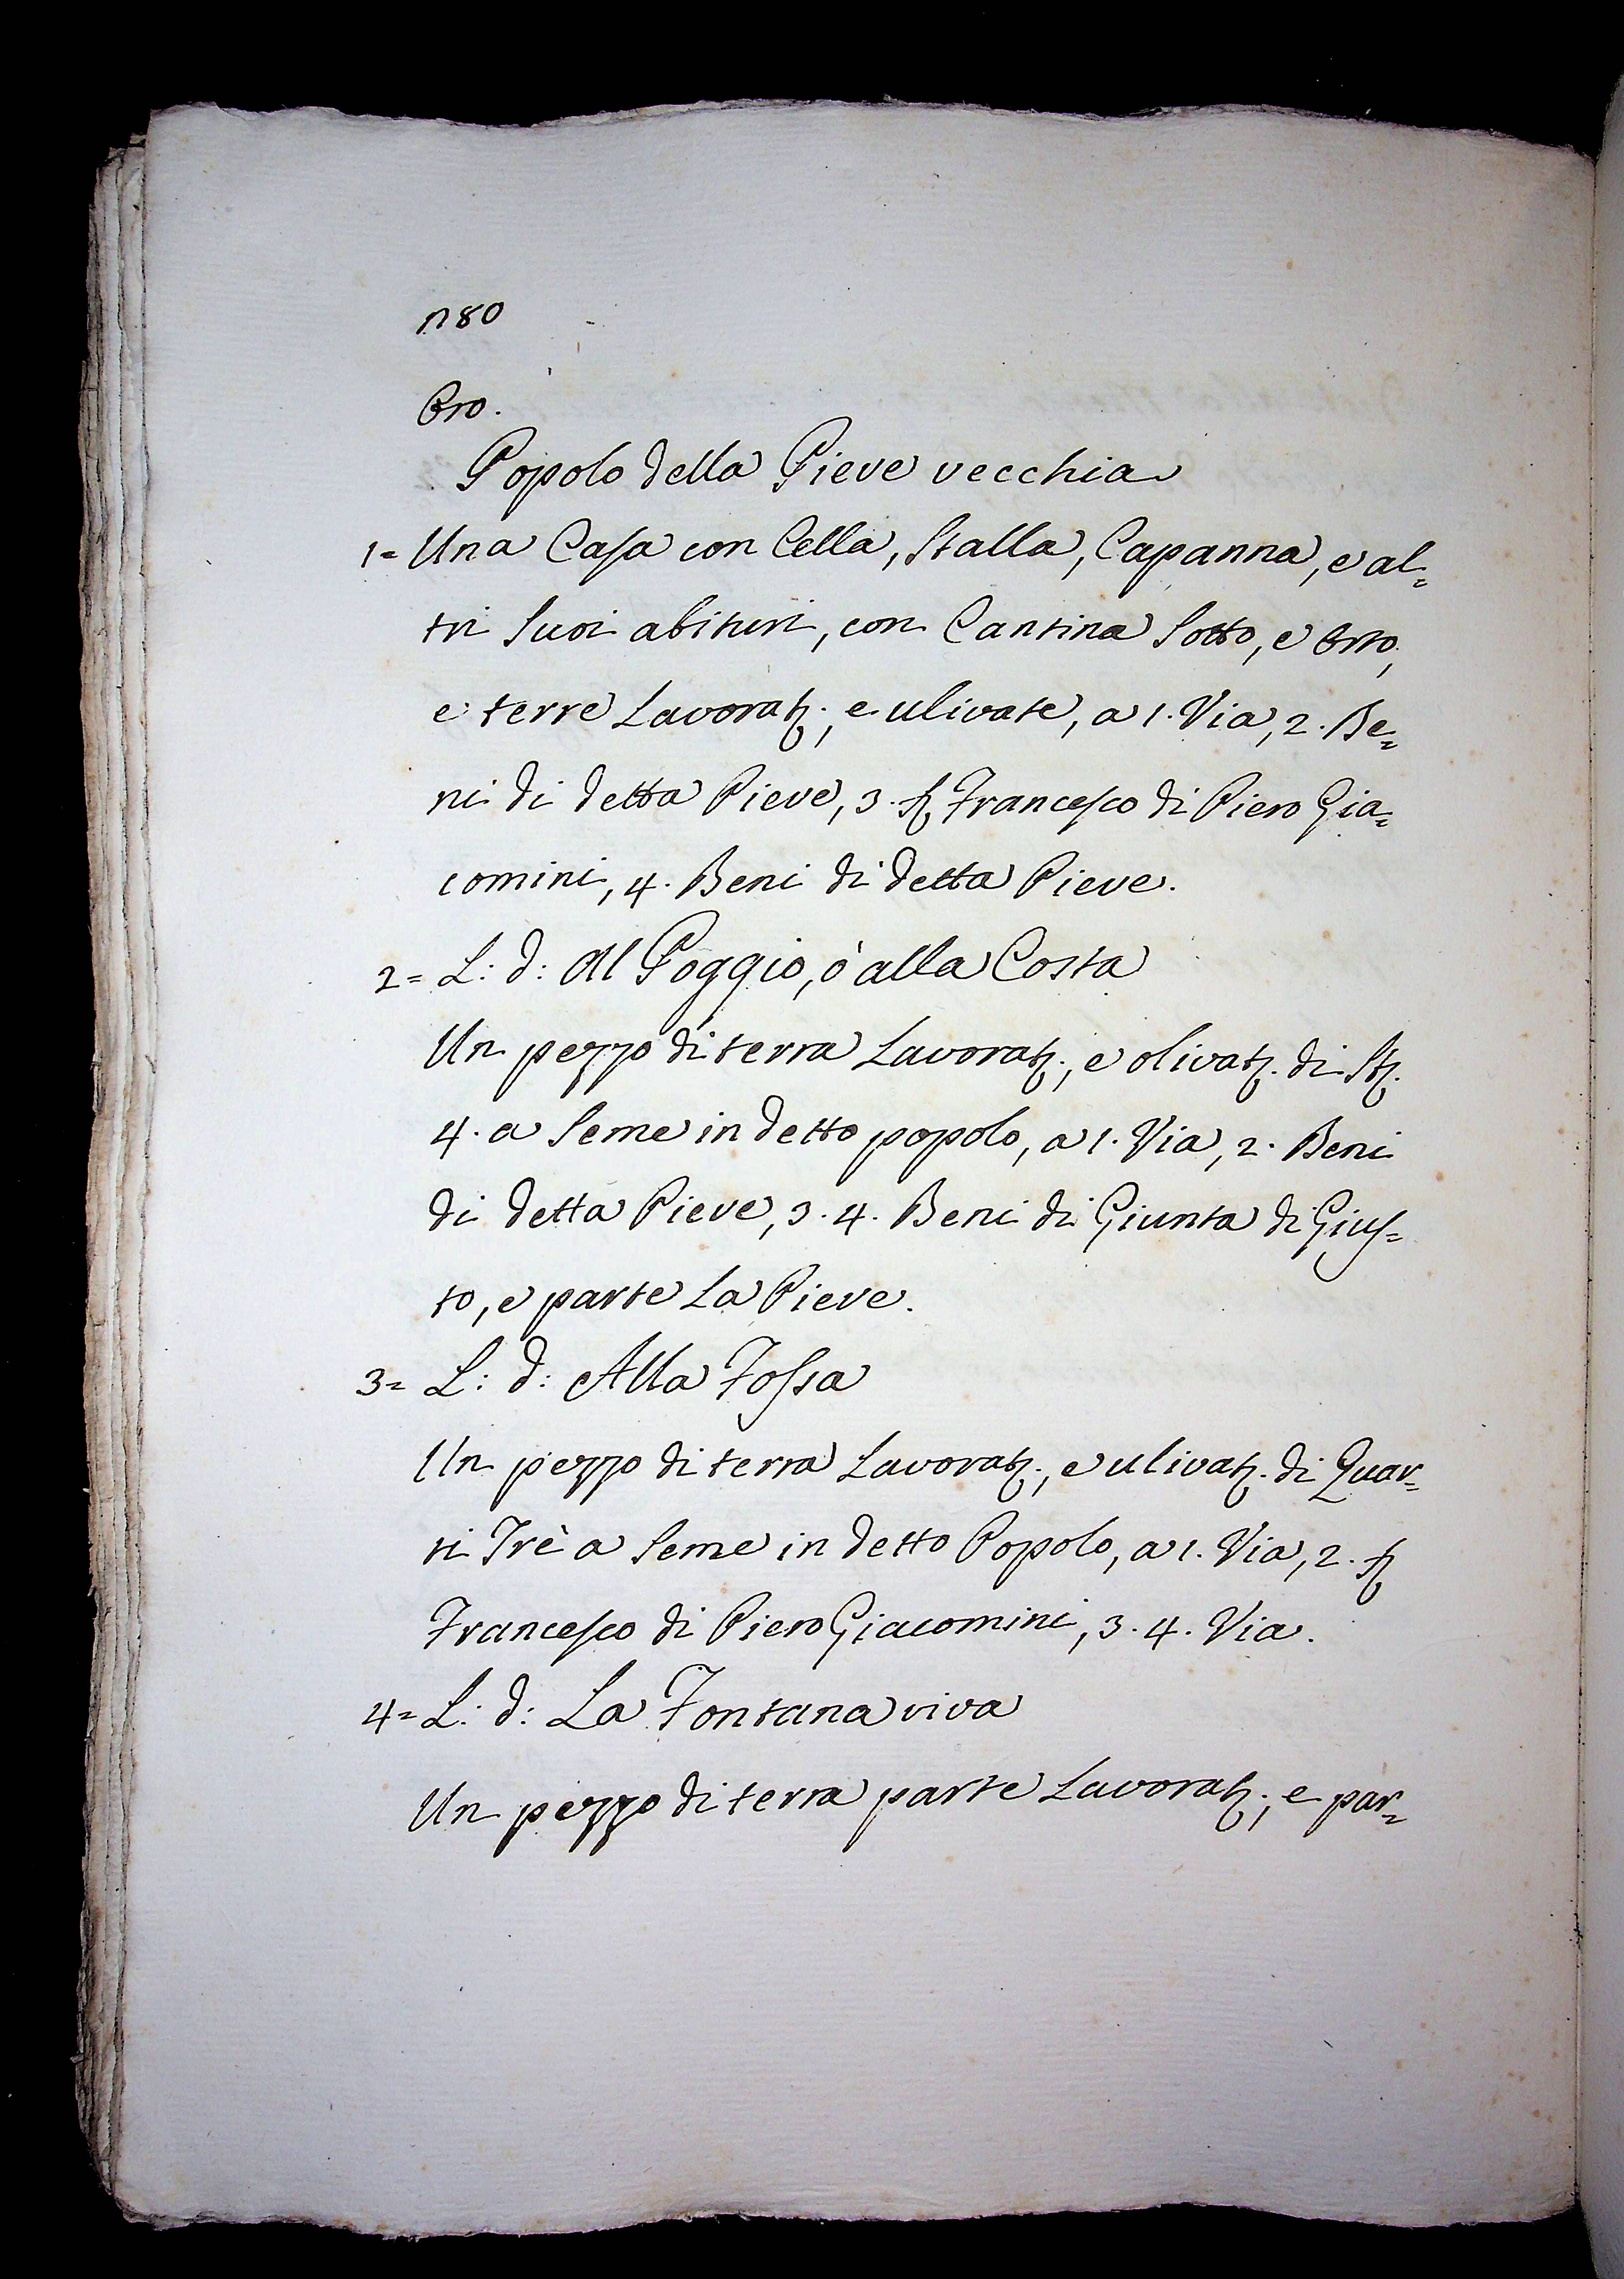 n80
Popolo della Pieve vecchia
1= Una Casa con Cella, Stalla, Capanna, e al=
tri Suoi abituri, con Cantina Sotto, e Orto,
e terre Lavorat:, e ulivate, a 1. Via, 2. Be=
ni di detta Pieve, 3. Francesco di Piero Gia=
comini, 4. Beni di detta Pieve.
2= L: d: Al Poggio, ò alla Costa
Un pezzo di terra Lavorat:, e olivat. di St.
4. a Seme in detto popolo, a 1. Via, 2. Beni
di detta Pieve, 3. 4. Beni di Giunta di Gius=
to, e parte La Pieve.
3= L: d: Alla Fossa
Un pezzo di terra Lavorat:, e ulivat. di Quar=
ti Trè a Seme in detto Popolo, a 1. Via, 2.
Francesco di Piero Giacomini, 3. 4. Via.
4= L: d: La Fontana viva
Un pezzo di terra parte Lavorat:, e par=